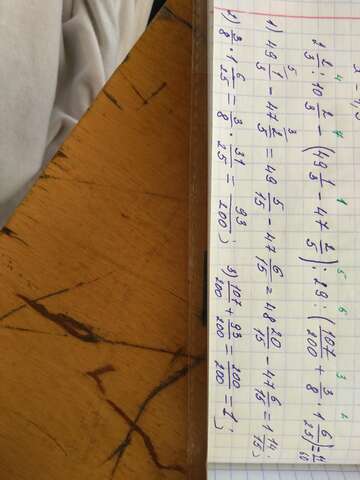 4 7 1 5 6 3 2
2 2/3 : 10 2/3 - (49 1/3 - 47 2/5) : 29 : (107/200 + 3/8 · 1 6/25) = 11/60
5 3
1) 49 1/3 - 47 2/5 = 49 5/15 - 47 6/15 = 48 20/15 - 47 6/15 = 1 14/15;
2) 3/8 · 1 6/25 = 3/8 · 31/25 = 93/200; 3) 107/200 + 93/200 = 200/200 = 1;